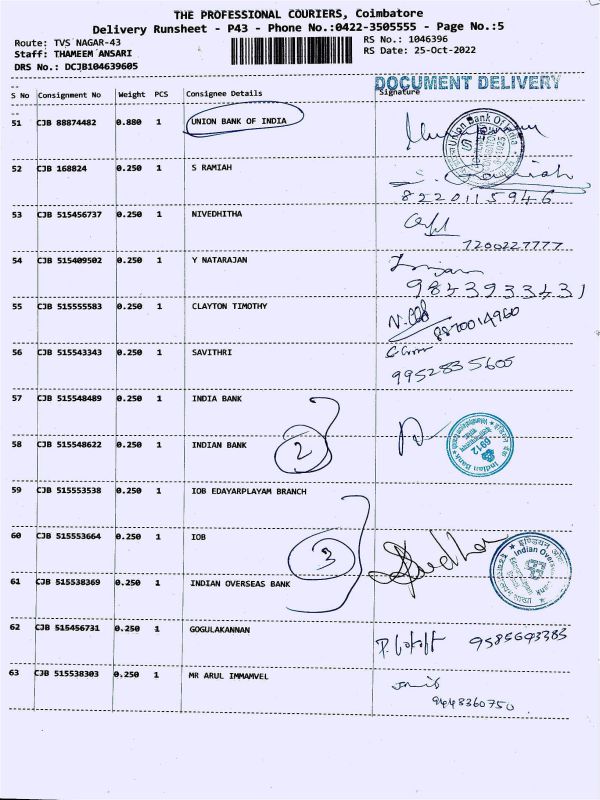 THE PROFESSIONAL COURIERS, Coimbatore
Delivery Runsheet - P43 - Phone No.:0422-3505555 - Page No.:5
Route: TVS NAGAR-43
Staff: THAMEEM ANSARI
DRS No.: DCJB104639605
RS No.: 1046396
RS Date: 25-Oct-2022
DOCUMENT DELIVERY
S No Consignment No Weight PCS Consignee Details Signature
51 CJB 88874482 0.880 1 UNION BANK OF INDIA
Union Bank Of India
52 CJB 168824 0.250 1 S RAMIAH
S. Ramiah
8220115946
53 CJB 515456737 0.250 1 NIVEDHITHA
7200227777
54 CJB 515409502 0.250 1 Y NATARAJAN
9843933431
55 CJB 515555583 0.250 1 CLAYTON TIMOTHY
8870014960
56 CJB 515543343 0.250 1 SAVITHRI
9952835605
57 CJB 515548489 0.250 1 INDIA BANK
58 CJB 515548622 0.250 1 INDIAN BANK
2
Indian Bank
59 CJB 515553538 0.250 1 IOB EDAYARPLAYAM BRANCH
60 CJB 515553664 0.250 1 IOB
3
इण्डियन
Indian Overseas Bank
61 CJB 515538369 0.250 1 INDIAN OVERSEAS BANK
62 CJB 515456731 0.250 1 GOGULAKANNAN
9585693383
63 CJB 515538303 0.250 1 MR ARUL IMMAMVEL
9448360750